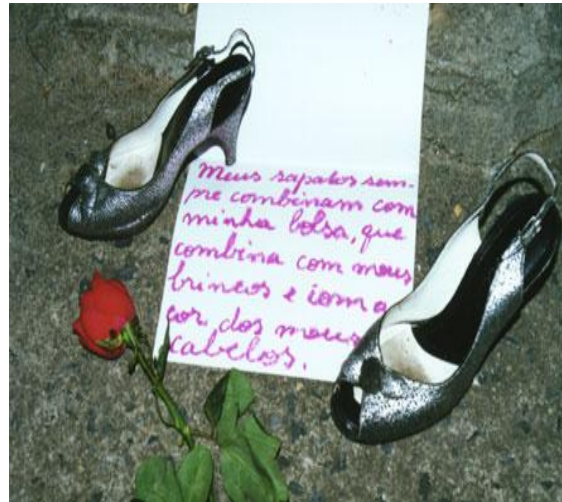 Meus sapatos sem-
pre combinam com
minha bolsa, que
combina com meus
brincos e com a
cor dos meus
cabelos.